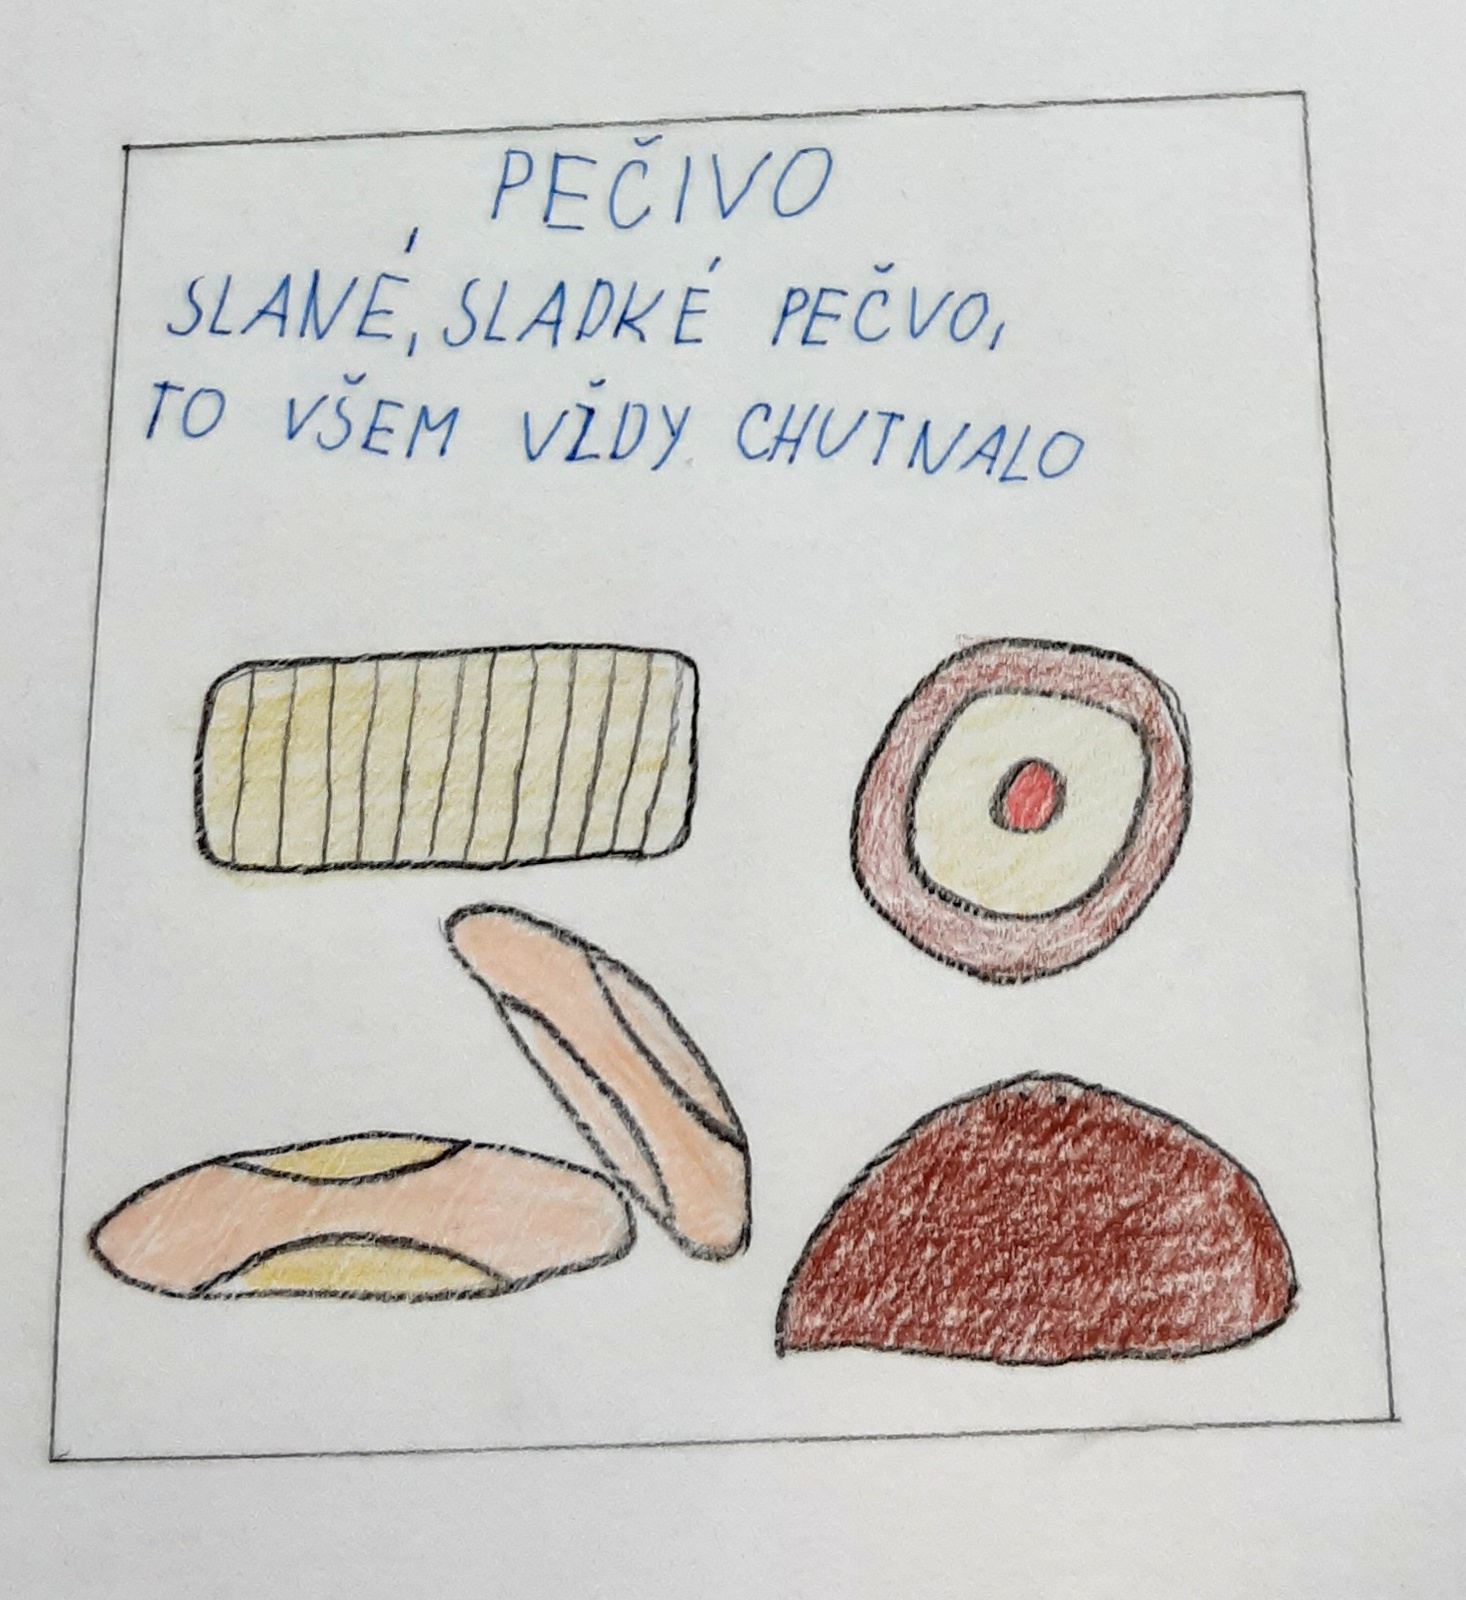 PEČIVO
SLANÉ, SLADKÉ PEČVO,
TO VŠEM VŽDY CHUTNALO